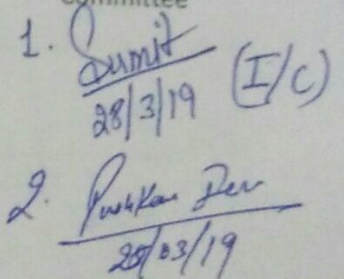 Committee
1. Sumit
28/3/19 (I/C)
2. Pushkar Dev
28/03/19